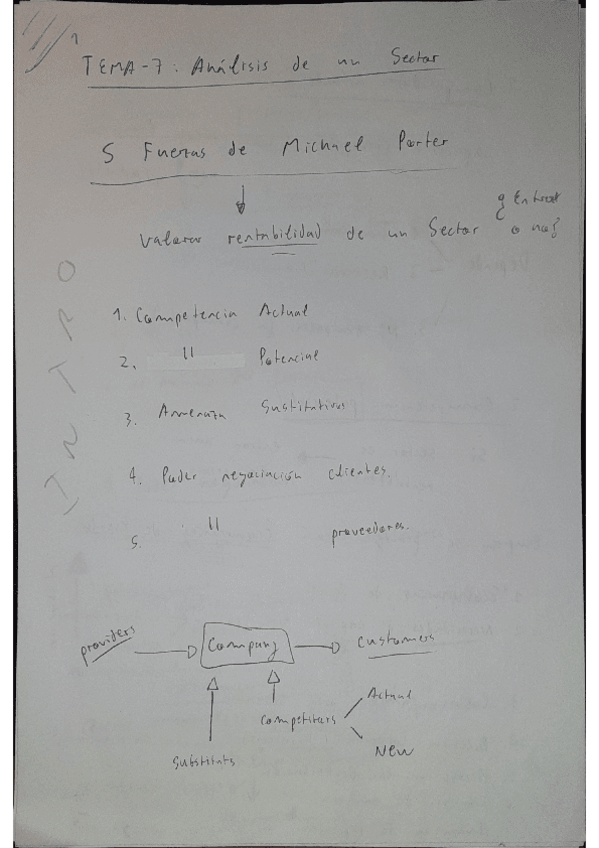 1
TEMA-7: Análisis de un Sector
5 Fuerzas de Michael Porter
Valorar rentabilidad de un Sector ¿Entrar
o no?
INTRO
1. Competencia Actual
2. " Potencial
3. Amenaza Sustitutivos
4. Poder negociación clientes.
5. " proveedores.
providers
Company
customers
Competitors
Actual
New
Substituts